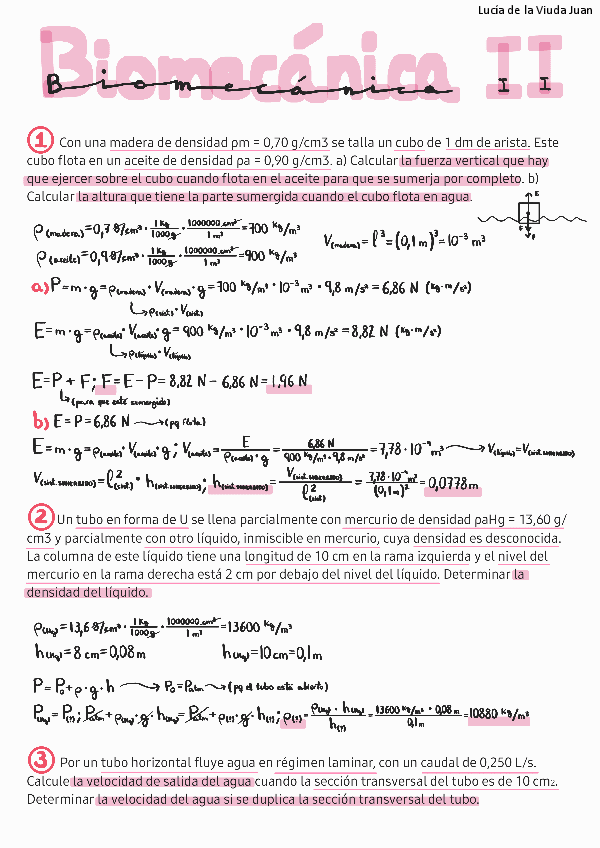 Lucía de la Viuda Juan
Biomecánica II
Biomecánica II
1 Con una madera de densidad ρm = 0,70 g/cm3 se talla un cubo de 1 dm de arista. Este
cubo flota en un aceite de densidad ρa = 0,90 g/cm3. a) Calcular la fuerza vertical que hay
que ejercer sobre el cubo cuando flota en el aceite para que se sumerja por completo. b)
Calcular la altura que tiene la parte sumergida cuando el cubo flota en agua.
E
F P
ρ(madera)=0,7 g/cm³ · 1 Kg/1000 g · 1000000 cm³/1 m³ =700 Kg/m³
V(madera)= l³=(0,1 m)³=10⁻³ m³
ρ(aceite)=0,9 g/cm³ · 1 Kg/1000 g · 1000000 cm³/1 m³ =900 Kg/m³
a) P=m·g=ρ(madera)·V(madera)·g=700 Kg/m³ · 10⁻³ m³ · 9,8 m/s² = 6,86 N (kg·m/s²)
↳ρ(sist)·V(sist)
E=m·g=ρ(aceite)·V(aceite)·g=900 Kg/m³ · 10⁻³ m³ · 9,8 m/s² = 8,82 N (kg·m/s²)
↳ρ(líquido)·V(líquido)
E=P + F; F=E-P= 8,82 N - 6,86 N = 1,96 N
↳(para que esté sumergido)
b) E=P=6,86 N →(pq flota)
E=m·g=ρ(aceite)·V(aceite)·g; V(aceite)= E/ρ(aceite)·g = 6,86 N/900 Kg/m³·9,8 m/s² =7,78·10⁻⁴ m³ → V(líquido)=V(sist.sumergido)
V(sist.sumergido)=l²(sist)·h(sist.sumergido); h(sist.sumergido)= V(sist.sumergido)/l²(sist) = 7,78·10⁻⁴ m³/(0,1 m)² =0,0778 m
2 Un tubo en forma de U se llena parcialmente con mercurio de densidad ρaHg = 13,60 g/
cm3 y parcialmente con otro líquido, inmiscible en mercurio, cuya densidad es desconocida.
La columna de este líquido tiene una longitud de 10 cm en la rama izquierda y el nivel del
mercurio en la rama derecha está 2 cm por debajo del nivel del líquido. Determinar la
densidad del líquido.
ρ(Hg)=13,6 g/cm³ · 1 Kg/1000 g · 1000000 cm³/1 m³ =13600 Kg/m³
h(Hg)=8 cm=0,08m h(Hg)=10cm=0,1m
P=P₀+ρ·g·h → P₀=Patm→(pq el tubo está abierto)
P(Hg)=P(?); Patm+ρ(Hg)·g·h(Hg)=Patm+ρ(?)·g·h(?); ρ(?)= ρ(Hg)·h(Hg)/h(?) = 13600 Kg/m³ · 0,08 m/0,1m =10880 Kg/m³
3 Por un tubo horizontal fluye agua en régimen laminar, con un caudal de 0,250 L/s.
Calcule la velocidad de salida del agua cuando la sección transversal del tubo es de 10 cm2.
Determinar la velocidad del agua si se duplica la sección transversal del tubo.